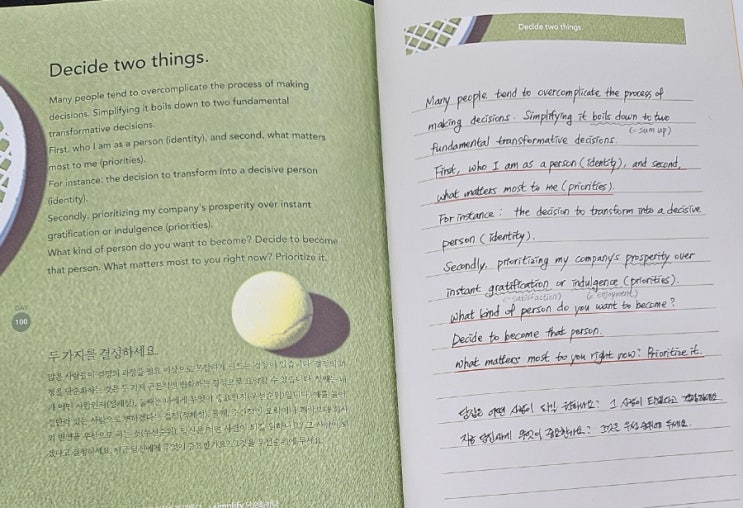 Decide two things.
Many people tend to overcomplicate the process of making
decisions. Simplifying it boils down to two fundamental
transformative decisions.
First, who I am as a person (identity), and second, what matters
most to me (priorities).
For instance: the decision to transform into a decisive person
(identity).
Secondly, prioritizing my company's prosperity over instant
gratification or indulgence (priorities).
What kind of person do you want to become? Decide to become
that person. What matters most to you right now? Prioritize it.
DAY
100
두 가지를 결정하세요.
많은 사람들이 결정의 과정을 필요 이상으로
Decide two things.
Many people tend to overcomplicate the process of
making decisions. Simplifying it boils down to two
(=sum up)
fundamental transformative decisions.
First, who I am as a person (identity), and second,
what matters most to me (priorities).
For instance : the decision to transform into a decisive
person (identity).
Secondly, prioritizing my company's prosperity over
instant gratification or indulgence (priorities).
(=satisfaction) (=enjoyment)
What kind of person do you want to become?
Decide to become that person.
What matters most to you right now? Prioritize it.
당신은 어떤 사람이 되길 원하나요? 그 사람이 되겠다고
지금 당신에게 무엇이 중요한가요? 그것을 우선순위에 두세요.